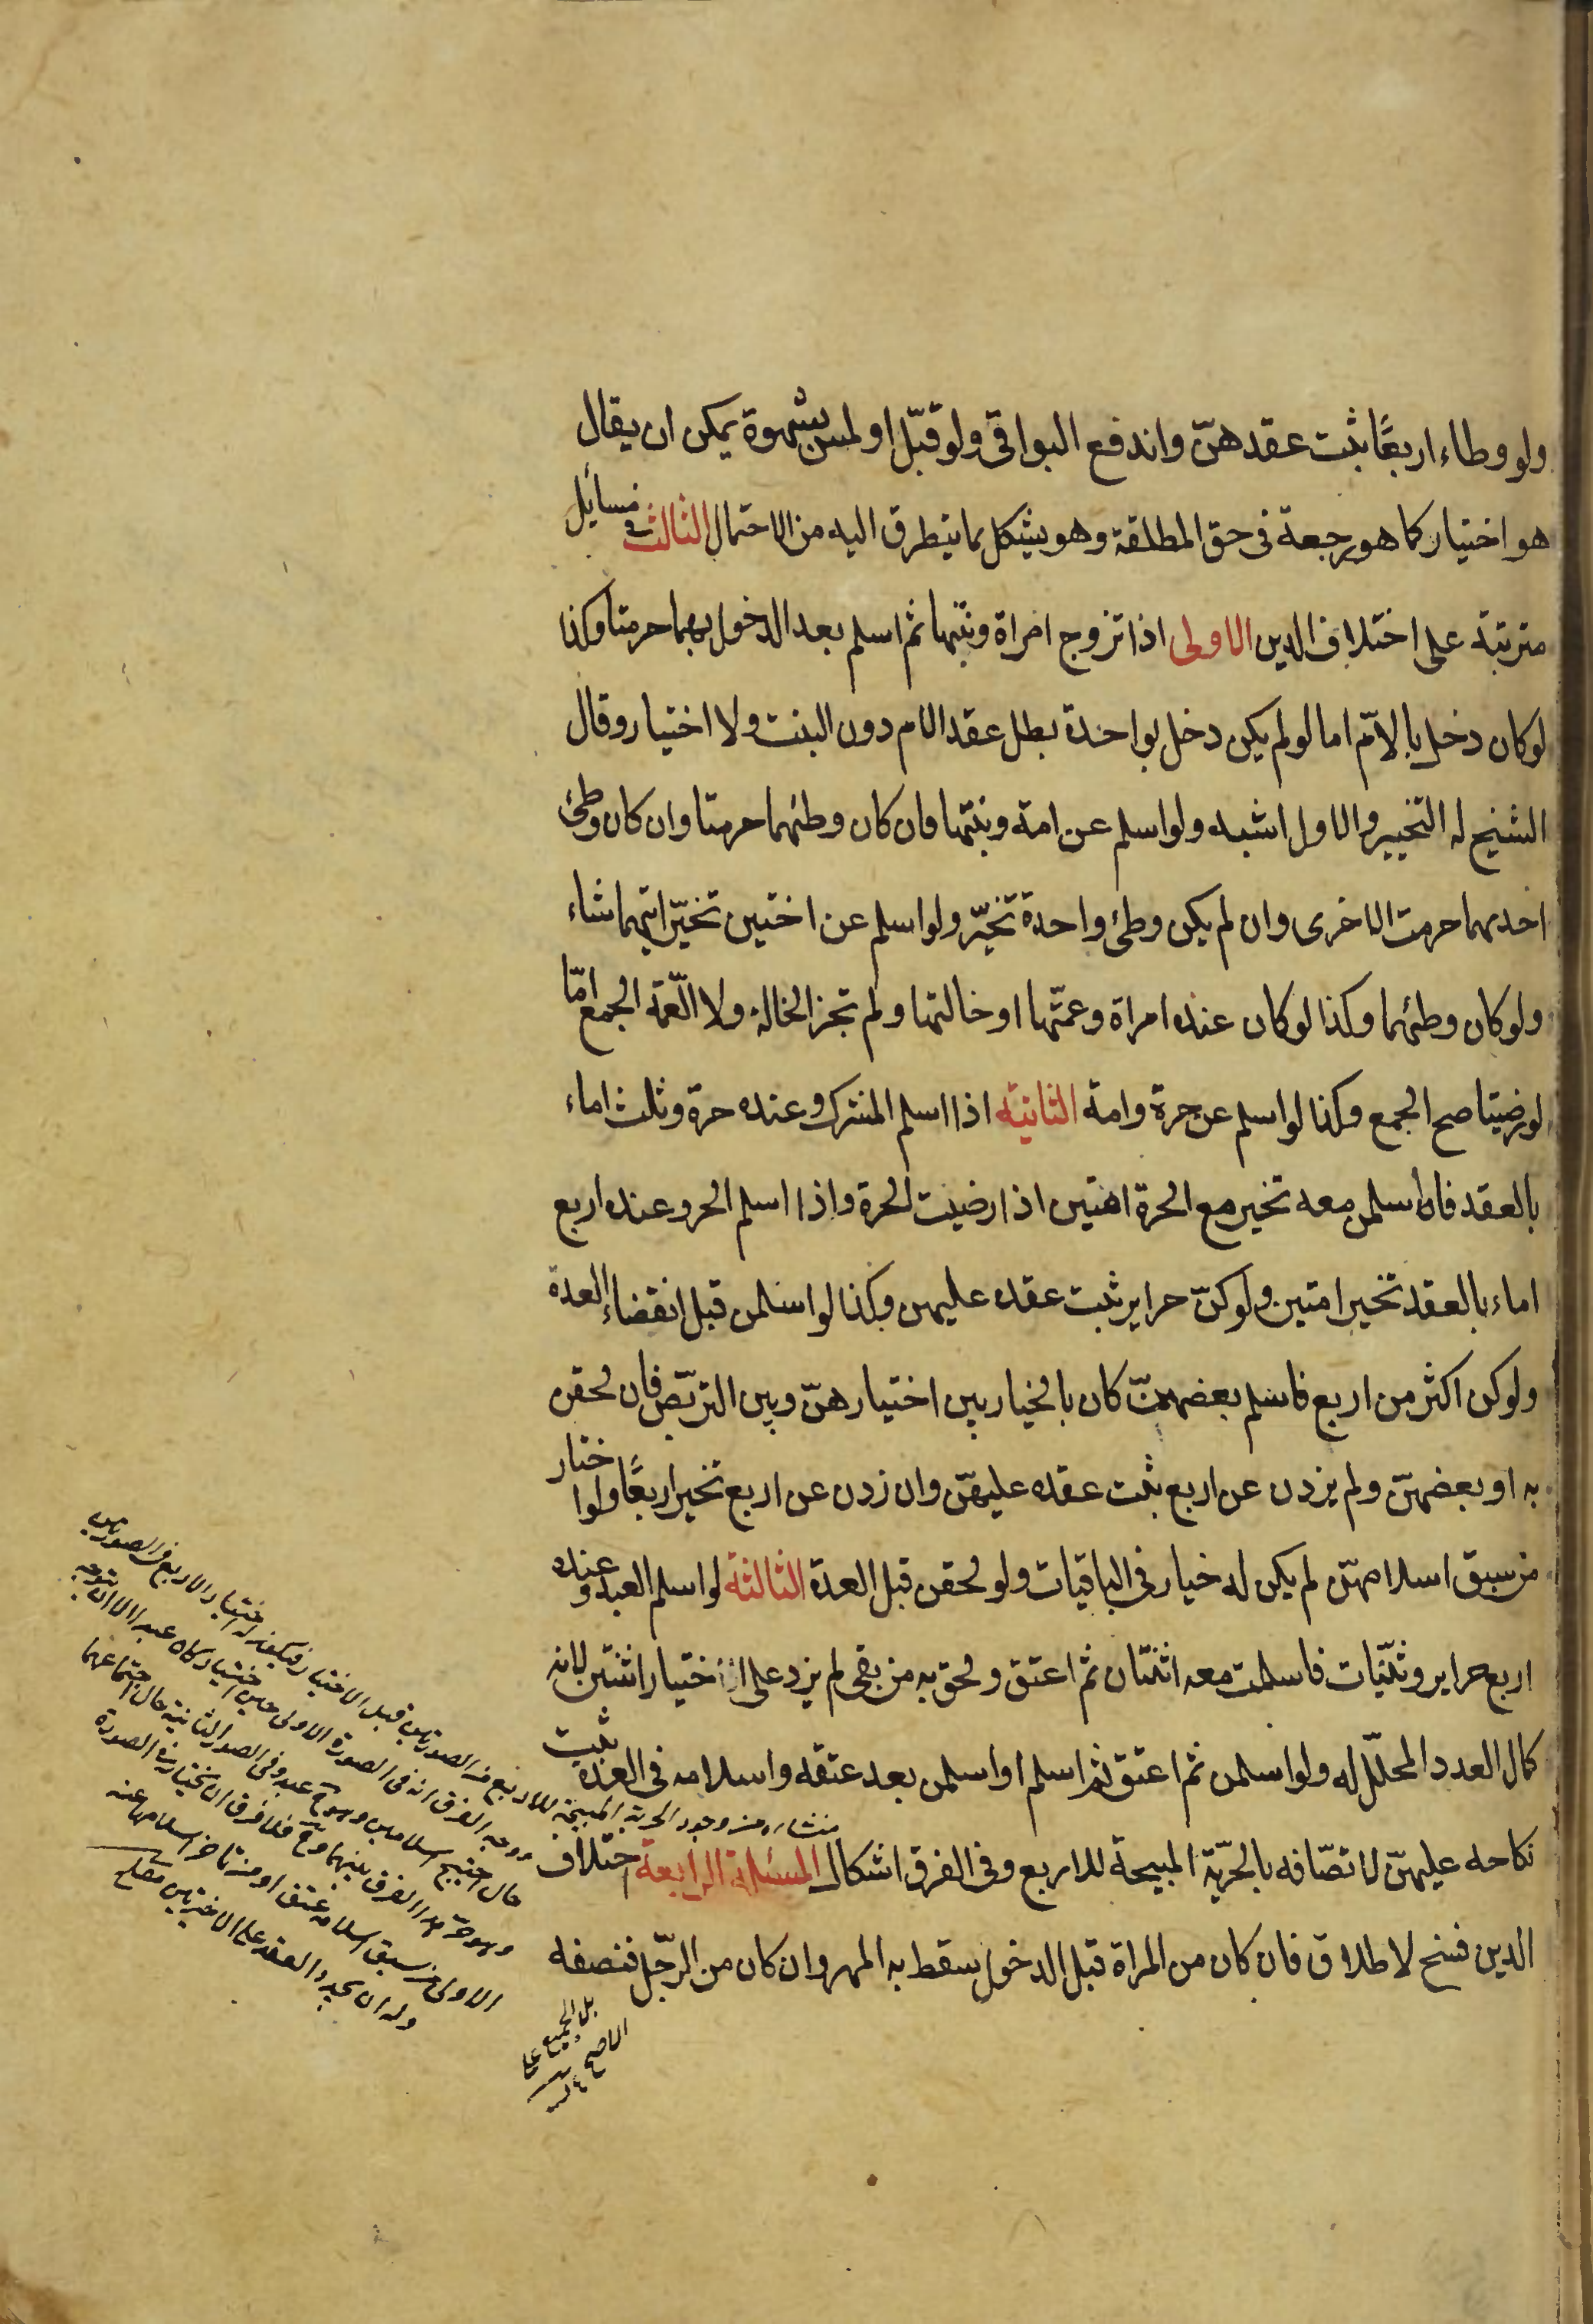 ولو وطاء اربعًا ثبت عقدهنّ واندفع البواقي ولو قبّل او لمس بشهوة يمكن ان يقال
هو اختيار كما هو رجعة في حق المطلقة وهو يشكل بما يتطرق اليه من الاحتمال الثالث في مسائل
مترتبة على اختلاف الدين الاولى اذا تزوج امراة وبنتها ثم اسلم بعد الدخول بهما حرمتا وكذا
لو كان دخل بالامّ اما لو لم يكن دخل بواحدة بطل عقد الام دون البنت ولا اختيار وقال
الشيخ له التخيير والاول اشبه ولو اسلم عن امة وبنتها فان كان وطئهما حرمتا وان كان وطئ
احديهما حرمت الاخرى وان لم يكن وطئ واحدة تخيّر ولو اسلم عن اختين تخيّر ايتهما شاء
ولو كان وطئهما وكذا لو كان عنده امراة وعمّتها او خالتها ولم تجز الخالة ولا العمّة الجمع امّا
لو رضيتا صح الجمع وكذا لو اسلم عن حرة وامة الثانية اذا اسلم المشرك وعنده حرة وثلث اماء
بالعقد فاسلمن معه تخير مع الحرة امتين اذا رضيت الحرة واذا اسلم الحر وعنده اربع
اماء بالعقد تخير امتين ولو كنّ حراير ثبت عقده عليهن وكذا لو اسلمن قبل انقضاء العدة
ولو كن اكثر من اربع فاسلم بعضهنّ كان بالخيار بين اختيارهنّ وبين التربّص فان لحقن
به او بعضهنّ ولم يزدن عن اربع ثبت عقده عليهنّ وان زدن عن اربع تخير اربعًا ولو اختار
من سبق اسلامهنّ لم يكن له خيار في الباقيات ولو لحقن قبل العدة الثالثة لو اسلم العبد وعنده
اربع حراير وثنيّات فاسلمت معه اثنتان ثم اعتق ولحق به من بقي لم يزد على اختيار اثنتين لانه
كمال العدد المحلّل له ولو اسلمن ثم اعتق ثم اسلم او اسلمن بعد عتقه واسلامه في العدة ثبت
نكاحه عليهنّ لاتصّافه بالحرّية المبيحة للاربع وفي الفرق اشكال المسئلة الرابعة اختلاف
الدين فسخ لا طلاق فان كان من المراة قبل الدخول سقط به المهر وان كان من الرجّل فنصفه
بل الجميع على
الاصح
منشاءه من وجود الحرية المبيحة للاربع في الصورتين قبل الاختيار فيكون له اختيار الاربع في الصورتين
ووجه الفرق انه في الصورة الاولى حين اختيار كان عبدا
وله ان يجدد العقد على الاخيرتين